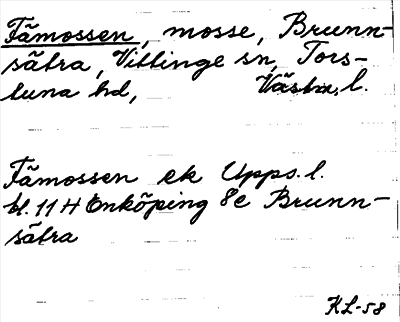 Fämossen, mosse, Brunn-
sätra, Vittinge sn, Tors-
tuna hd, Västm. l.
Fämossen ek Upps. l.
bl. 11 H Enköping 8e Brunn-
sätra
KL-58